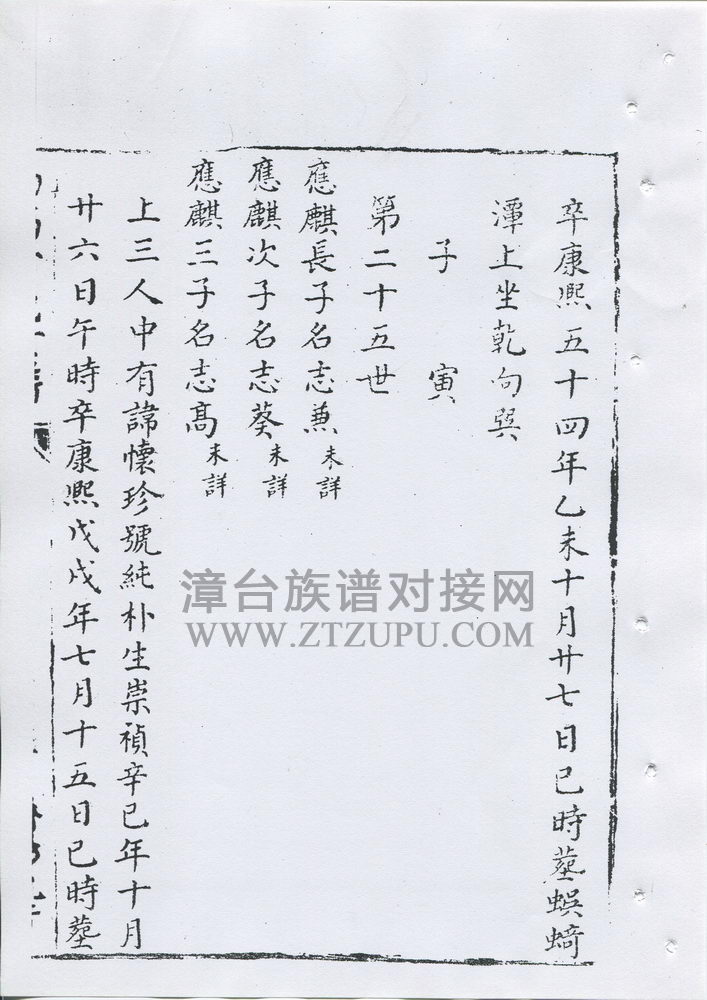 卒康熙五十四年乙未十月廿七日巳時塟蜈蜞
潭上坐乾向巽
子 寅
第二十五世
應麒長子名志兼未詳
應麒次子名志葵未詳
應麒三子名志高未詳
上三人中有諱懷珍號純朴生崇禎辛巳年十月
廿六日午時卒康熙戊戌年七月十五日巳時塟
漳台族谱对接网
WWW.ZTZUPU.COM